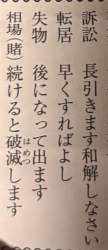 訴訟 長引きます和解しなさい
転居 早くすればよし
失物 後になって出ます
相場(賭) 続けると破滅します
はめつ